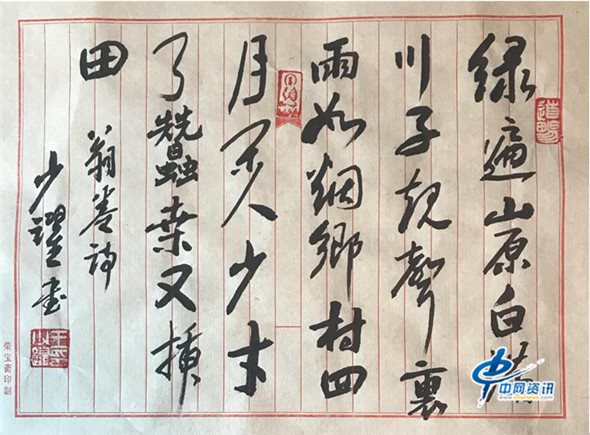 绿遍山原白满
川子規聲裏
雨如烟鄉村四
月闲人少才
了蠶桑又插
田 翁卷诗
少 书
荣宝斋印制
中网资讯